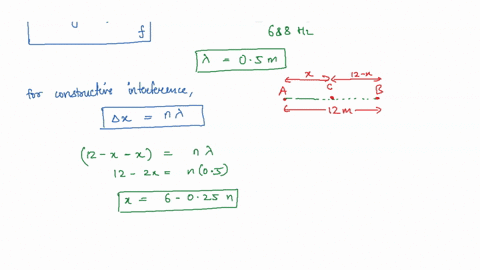 f
688 Hz
λ = 0.5 m
for constructive interference,
Δx = nλ
x 12-x
A C B
12 m
(12 - x - x) = n λ
12 - 2x = n (0.5)
x = 6 - 0.25 n